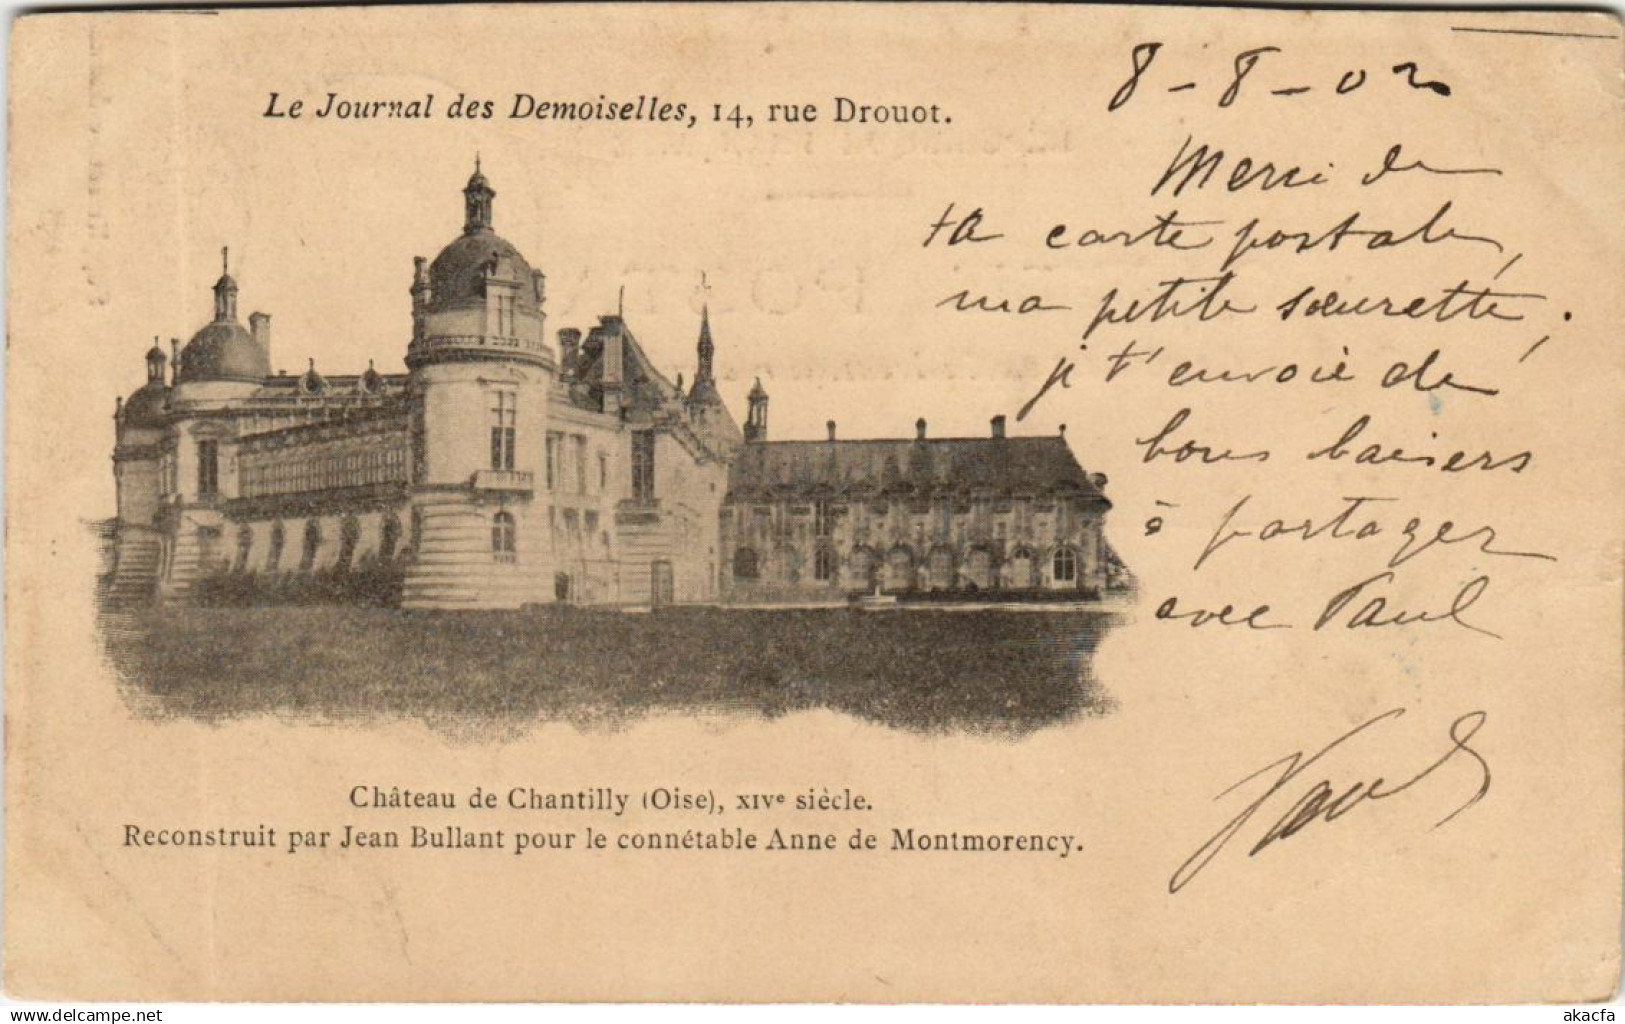 Le Journal des Demoiselles, 14, rue Drouot.
8-8-02
Merci de
ta carte postale,
ma petite sœurette ;
je t'envoie de
bons baisers
à partager
avec Paul
Château de Chantilly (Oise), XIVe siècle.
Reconstruit par Jean Bullant pour le connétable Anne de Montmorency.
delcampe.net
akacfa